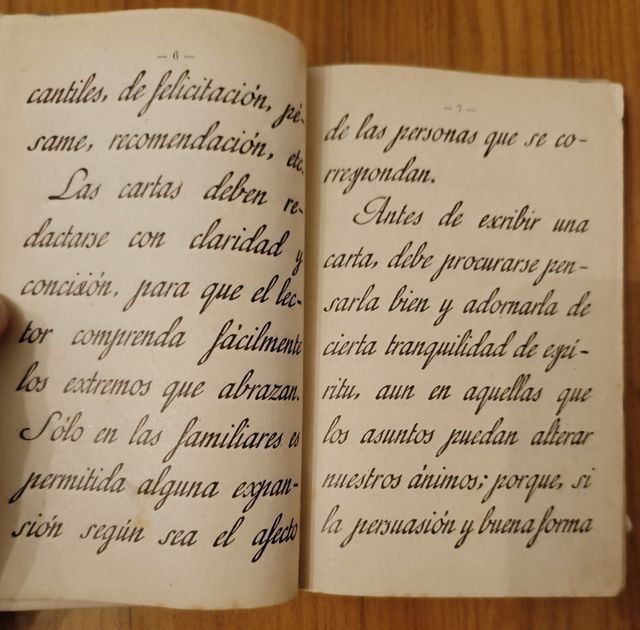 — 6 —
cantiles, de felicitación, pé-
same, recomendación, etc.
Las cartas deben re-
dactarse con claridad y
concisión, para que el lec-
tor comprenda fácilmente
los extremos que abrazan.
Sólo en las familiares es
permitida alguna expan-
sión según sea el afecto
— 7 —
de las personas que se co-
rrespondan.
Antes de escribir una
carta, debe procurarse pen-
sarla bien y adornarla de
cierta tranquilidad de espí-
ritu, aun en aquellas que
los asuntos puedan alterar
nuestros ánimos; porque, si
la persuasión y buena forma